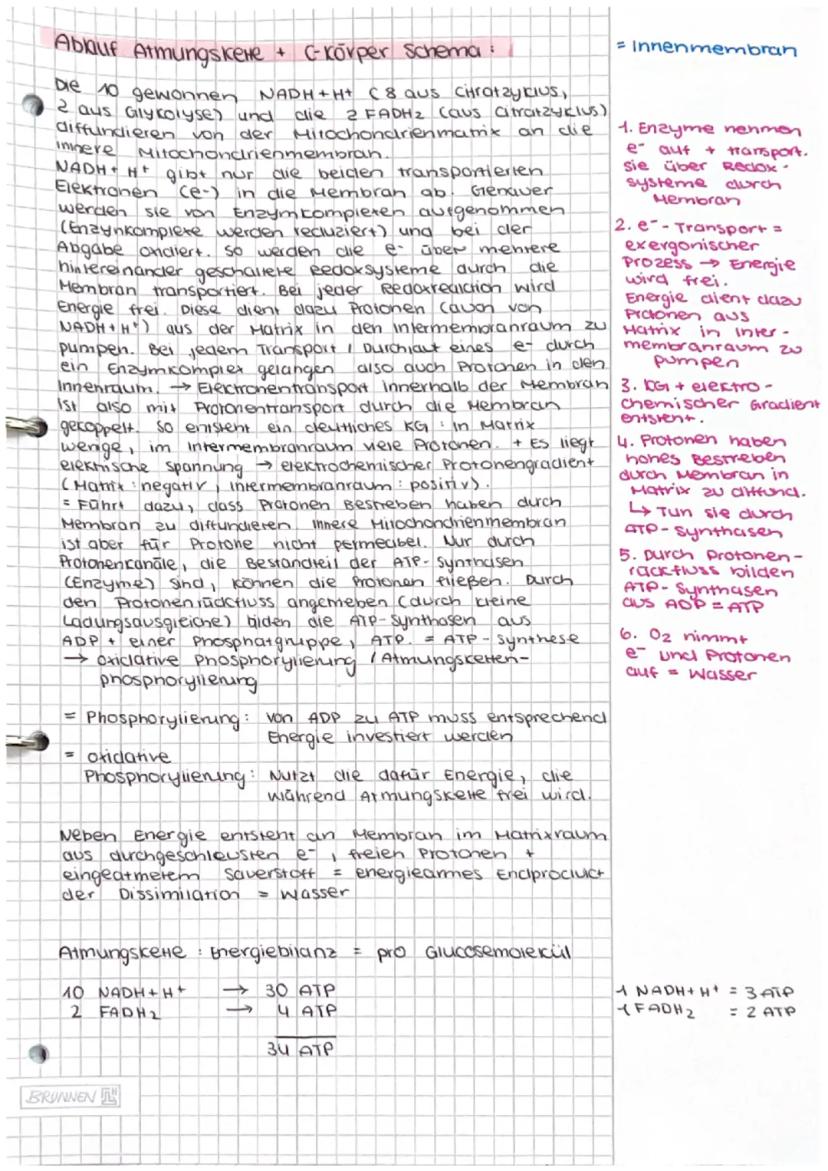 Ablauf Atmungskette + C-Körper Schema :
= Innenmembran
Die 10 gewonnen NADH+H+ (8 aus Citratzyklus,
2 aus Glykolyse) und die 2 FADH2 (aus Citratzyklus)
diffundieren von der Mitochondrienmatrix an die
innere Mitochondrienmembran.
NADH+H+ gibt nur die beiden transportierten
Elektronen (e-) in die Membran ab. Genauer
werden sie von Enzymkomplexen aufgenommen
(Enzymkomplexe werden reduziert) und bei der
Abgabe oxidiert. So werden die e- über mehrere
hintereinander geschaltete Redoxsysteme durch die
Membran transportiert. Bei jeder Redoxreaktion wird
Energie frei. Diese dient dazu Protonen (auch von
NADH+H+) aus der Matrix in den Intermembranraum zu
pumpen. Bei jedem Transport / Durchlauf eines e- durch
ein Enzymkomplex gelangen also auch Protonen in den
Innenraum. → Elektronentransport innerhalb der Membran
ist also mit Protonentransport durch die Membran
gekoppelt. So entsteht ein deutliches KG : in Matrix
wenige, im Intermembranraum viele Protonen. + Es liegt
elektrische Spannung → elektrochemischer Protonengradient
(Matrix : negativ, Intermembranraum : positiv).
= Führt dazu, dass Protonen Bestreben haben durch
Membran zu diffundieren. Innere Mitochondrienmembran
ist aber für Protone nicht permeabel. Nur durch
Protonenkanäle, die Bestandteil der ATP-Synthasen
(Enzyme) sind, können die Protonen fließen. Durch
den Protonenrückfluss angetrieben (durch kleine
Ladungsausgleiche) bilden die ATP-Synthasen aus
ADP + einer Phosphatgruppe, ATP. = ATP-Synthese
→ oxidative Phosphorylierung / Atmungsketten-
phosphorylierung
= Phosphorylierung : von ADP zu ATP muss entsprechend
Energie investiert werden
= oxidative
Phosphorylierung : Nutzt die dafür Energie, die
während Atmungskette frei wird.
Neben Energie entsteht an Membran im Matrixraum
aus durchgeschleusten e-, freien Protonen +
eingeatmetem Sauerstoff = energiearmes Endprodukt
der Dissimilation = Wasser
Atmungskette : Energiebilanz = pro Glucosemolekül
10 NADH+H+ → 30 ATP
2 FADH2 → 4 ATP
34 ATP
BRUNNEN
1. Enzyme nehmen
e- auf + transport.
sie über Redox-
systeme durch
Membran
2. e- - Transport =
exergonischer
Prozess → Energie
wird frei.
Energie dient dazu
Protonen aus
Matrix in Inter-
membranraum zu
pumpen
3. KG + elektro-
chemischer Gradient
entsteht.
4. Protonen haben
hohes Bestreben
durch Membran in
Matrix zu diffund.
↳ Tun sie durch
ATP-Synthasen
5. Durch Protonen-
rückfluss bilden
ATP-Synthasen
aus ADP = ATP
6. O2 nimmt
e- und Protonen
auf = Wasser
1 NADH+H+ = 3 ATP
1 FADH2 = 2 ATP